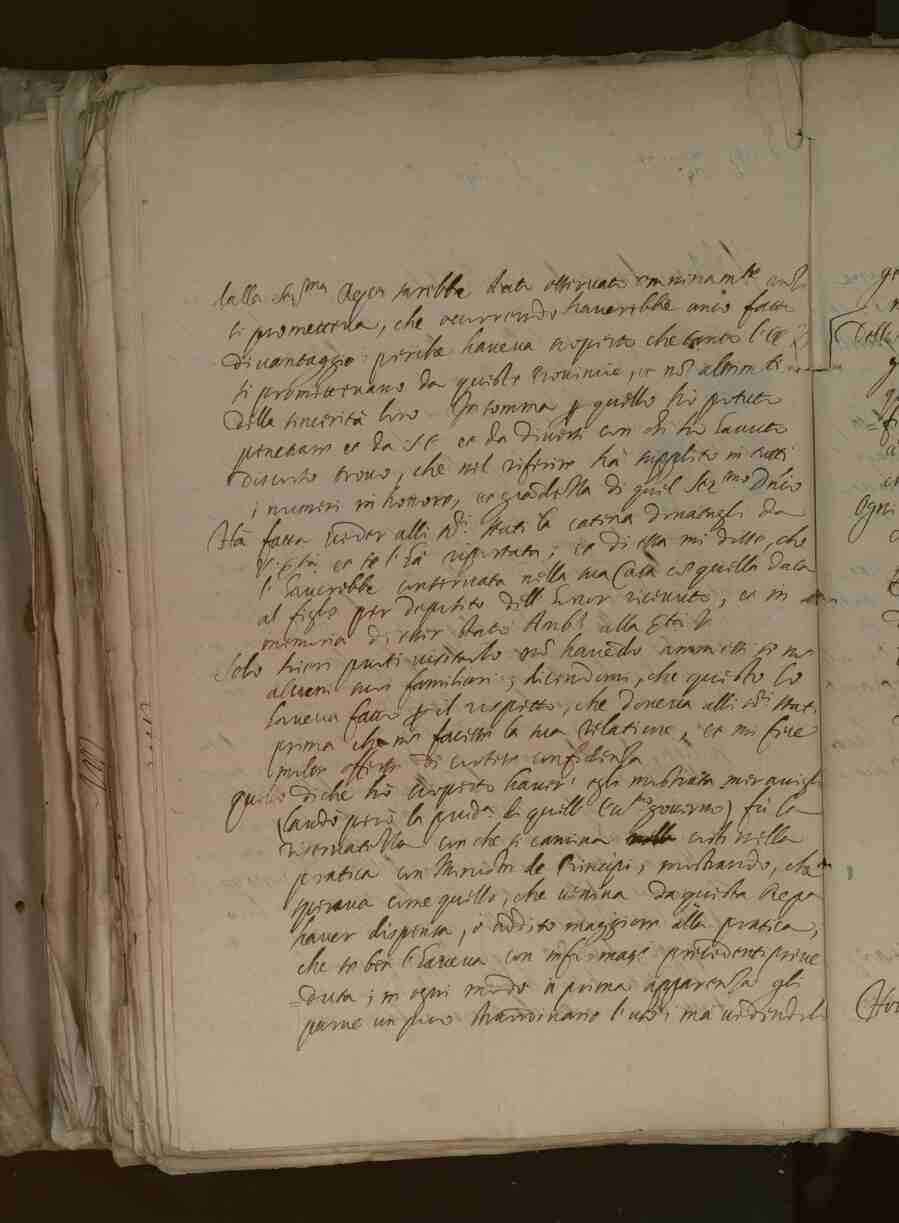 dalla Ser.ma Rep.ca sarebbe stato osservato
si prometteva, che occorrendo haverebbe anco fatto
di vantaggio; perche haveva scoperto che tanto
si promettevano da queste Provincie, et non altrimenti
della sincerità loro. In somma per quello hò potuto
penetrare et da S.E. et da diversi con chi hò havuto
discorso trovo, che nel riferire hà supplito in tutti
i numeri in honore, et grandezza di quel Ser.mo Dominio
Hà fatto veder alli S.ri Stati la catena donatagli da
V. Ser.tà et se l'hà riportata; et di essa mi disse, che
l'haverebbe conservata nella sua Casa con quella data
al figlio per deposito dell'honor ricevuto, et in
memoria di esser stato Amb.r alla Ser.tà V.
Solo hieri potei visitarlo non havendo ammessi se non
alcuni suoi familiari; dicendomi, che questo lo
haveva fatto per il rispetto, che doveva alli S.ri Stati
prima che non facesse la sua relatione, et mi fece
molte offerte di cortese confidenza
Quello di che hò scoperto haver egli mostrato meraviglia
(laudò però la prudenza di quell' governo) fù la
riservatezza con che si camina costì nella
pratica con Ministri de Principi; mostrando, che
sperava come quello, che veniva da questa Rep.ca
haver dispensa, ò adito maggiore alla pratica,
che se ben l'haveva con informationi precedenti preve-
=duta; in ogni modo in prima apparenza gli
parve un poco straordinario l'uso; mà vedendoli